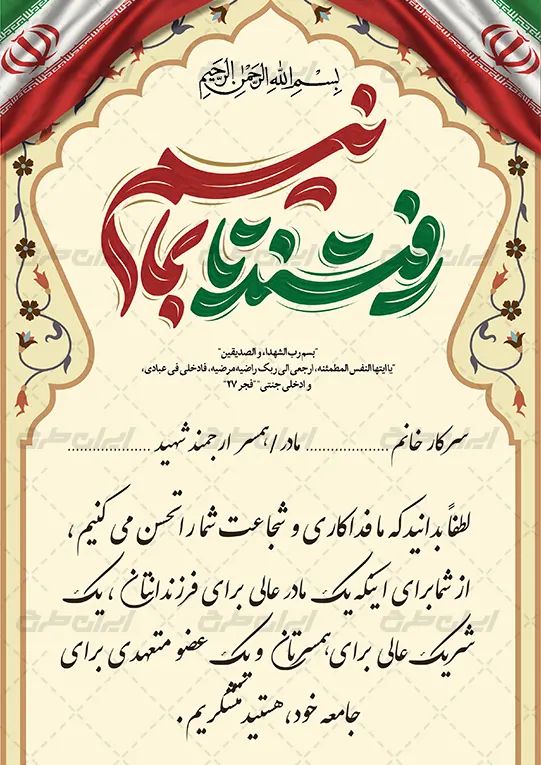 بسم الله الرحمن الرحیم
رفتند تا بمانیم
"بسم رب الشهداء و الصدیقین"
"یا ایتها النفس المطمئنه، ارجعی الی ربک راضیه مرضیه، فادخلی فی عبادی،
و ادخلی جنتی" "فجر ۲۷"
سرکار خانم .................... مادر / همسر ارجمند شهید ....................
لطفاً بدانید که ما فداکاری و شجاعت شما را تحسن می کنیم ،
از شما برای اینکه یک مادر عالی برای فرزندانتان ، یک
شریک عالی برای همسرتان و یک عضو متعهدی برای
جامعه خود، هستید متشکریم .
ایران طرح